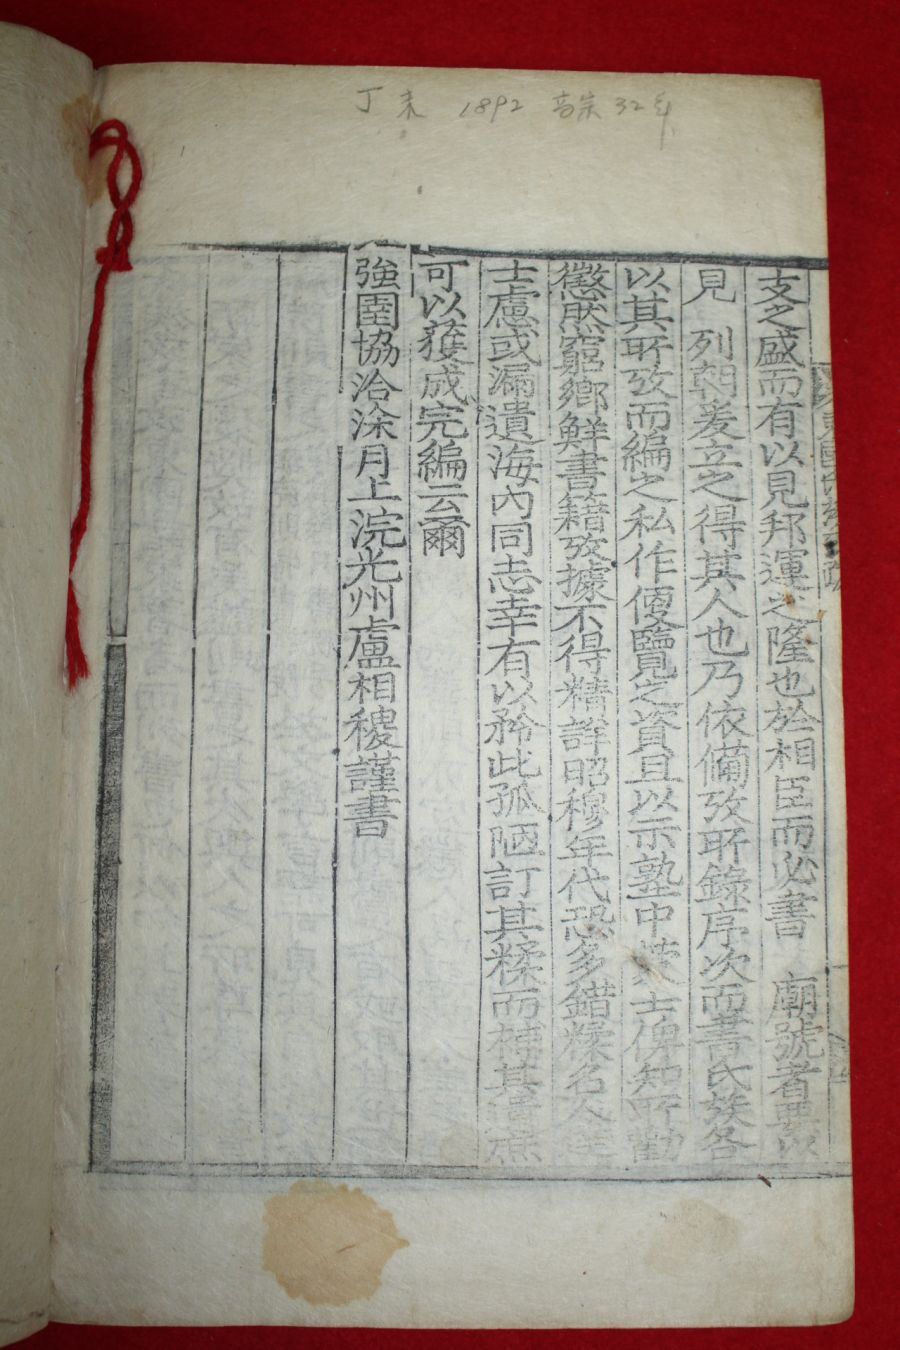 丁未 1892 高宗 32年
支之盛而有以見邦運之隆也於相臣而必書 廟號者要以
見 列朝爰立之得其人也乃依備攷所錄序次而書氏族各
以其所攷而編之私作便覽之資且以示塾中蒙士俾知所勸
懲然窮鄉鮮書籍攷據不得精詳昭穆年代恐多錯糅名公
士慮或漏遺海內同志幸有以矜此孤陋訂其糅而補其遺庶
可以獲成完編云爾
強圉協洽涂月上浣光州盧相稷謹書